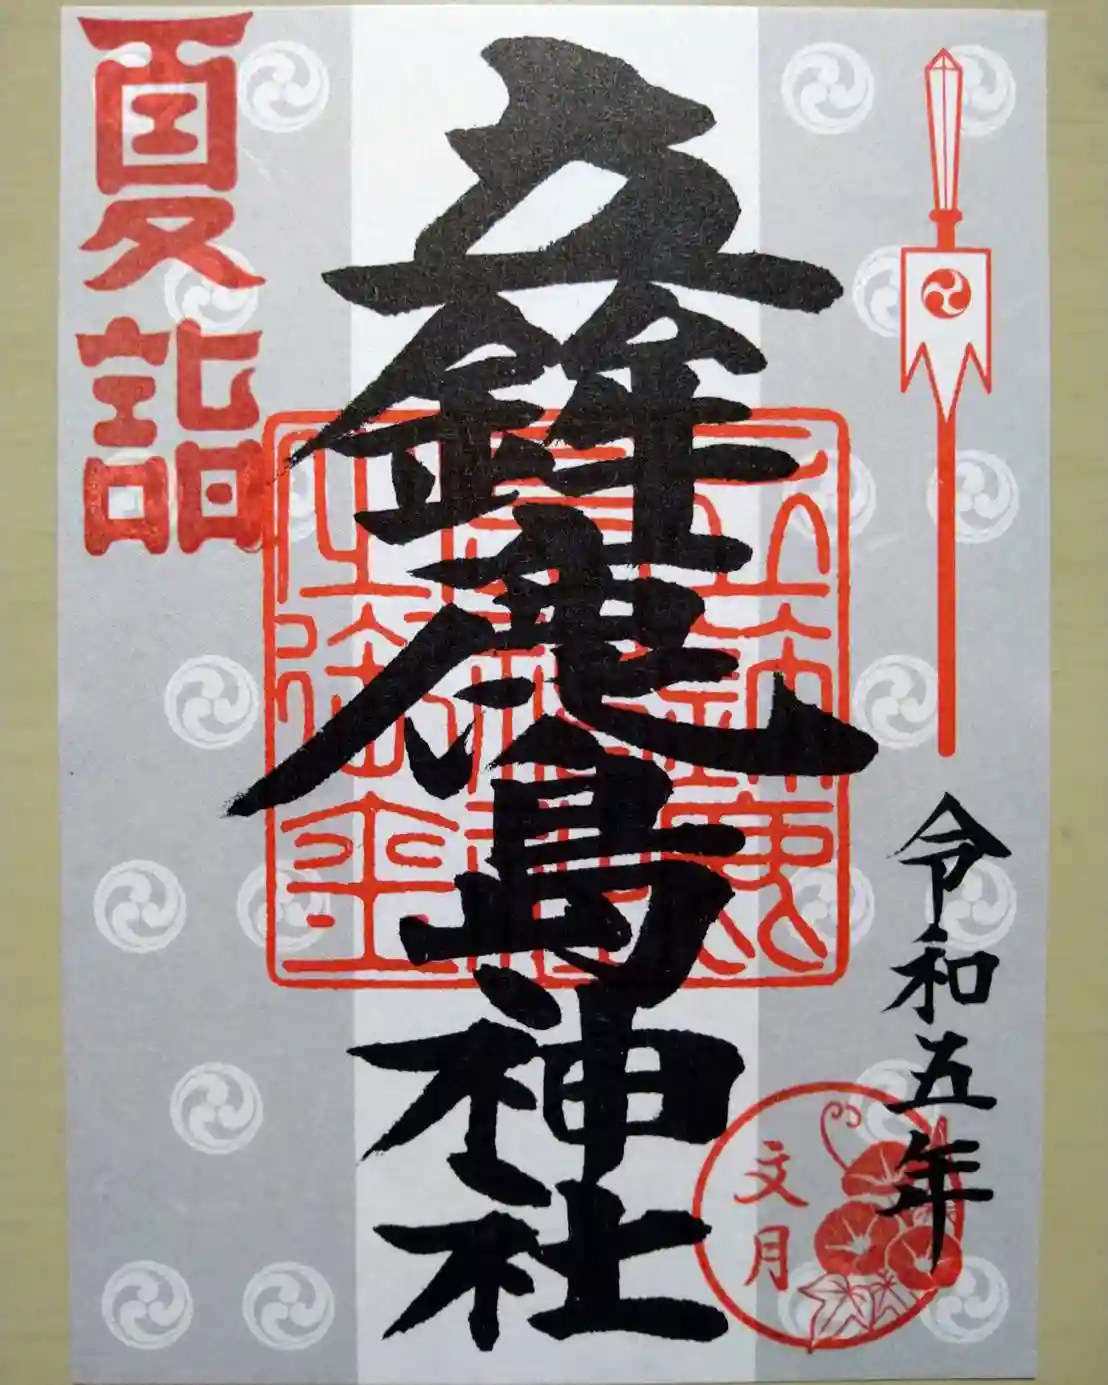 令和五年
文月
立鉾鹿島神社
夏詣